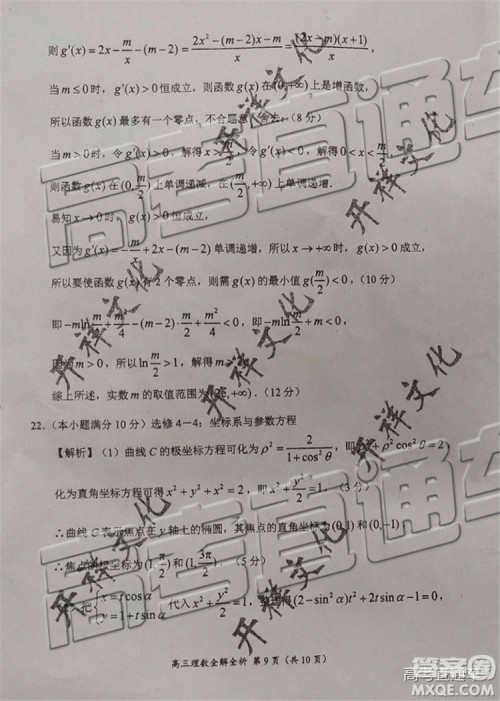 则 g′(x)=2x-m/x-(m-2)=(2x²-(m-2)x-m)/x=((2x-m)(x+1))/x,
当 m≤0 时，g′(x)>0 恒成立，则函数 g(x) 在 (0,+∞) 上是增函数，
所以函数 g(x) 最多有一个零点，不合题意，舍去；（8 分）
当 m>0 时，令 g′(x)>0，解得 x>m/2，令 g′(x)<0，解得 0<x<m/2，
则函数 g(x) 在 (0,m/2) 上单调递减，在 (m/2,+∞) 上单调递增.
易知 x→0 时，g(x)>0 恒成立，
又因为 g′(x)=-m/x+2x-(m-2) 单调递增，所以 x→+∞ 时，g(x)>0 成立，
所以要使函数 g(x) 有 2 个零点，则需 g(x) 的最小值 g(m/2)<0，（10 分）
即 -mln m/2+m²/4-(m-2)·m/2+m²/4<0，即 -mln m/2+m<0，
因为 m>0，所以 ln m/2>1，解得 m>2e，
综上所述，实数 m 的取值范围为 (2e,+∞).（12 分）
22.（本小题满分 10 分）选修 4－4：坐标系与参数方程
【解析】（1）曲线 C 的极坐标方程可化为 ρ²=2/(1+cos²θ)，即 ρ²+ρ²cos²θ=2
化为直角坐标方程可得 x²+y²+x²=2，即 x²+y²/2=1.（3 分）
∴曲线 C 表示焦点在 y 轴上的椭圆，其焦点的直角坐标为 (0,1) 和 (0,-1)
∴焦点的极坐标为 (1,π/2) 和 (1,3π/2) （5 分）
把 {x=tcosα y=1+tsinα 代入 x²+y²/2=1， (2-sin²α)t²+2tsinα-1=0，
高三理数全解全析 第 9 页（共 10 页）
高考直通车
开祥文化
开祥文化
开祥文化
开祥文化
开祥文化
开祥文化
高考直通车
答案圈
MXQE.COM